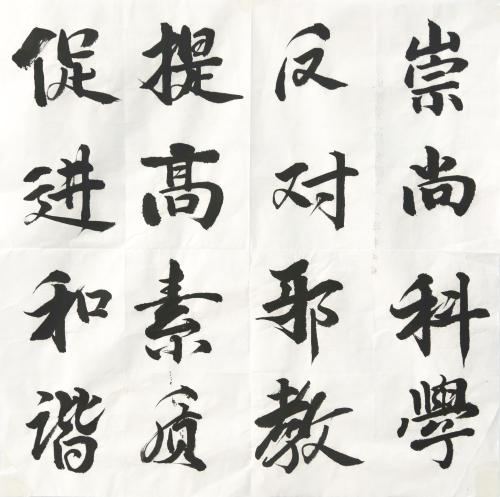 崇尚科學
反对邪教
提高素质
促进和谐